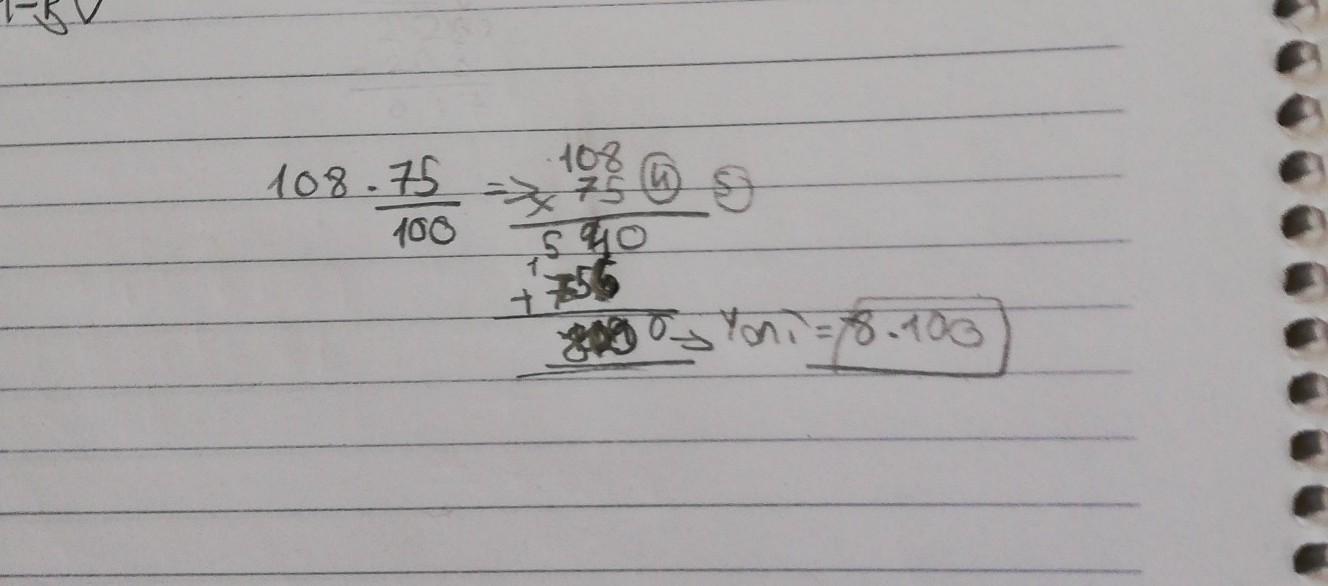 108 . 75 / 100 => 108
x 75 4 5
540
1
+ 756
8100 → Yani = 8.100